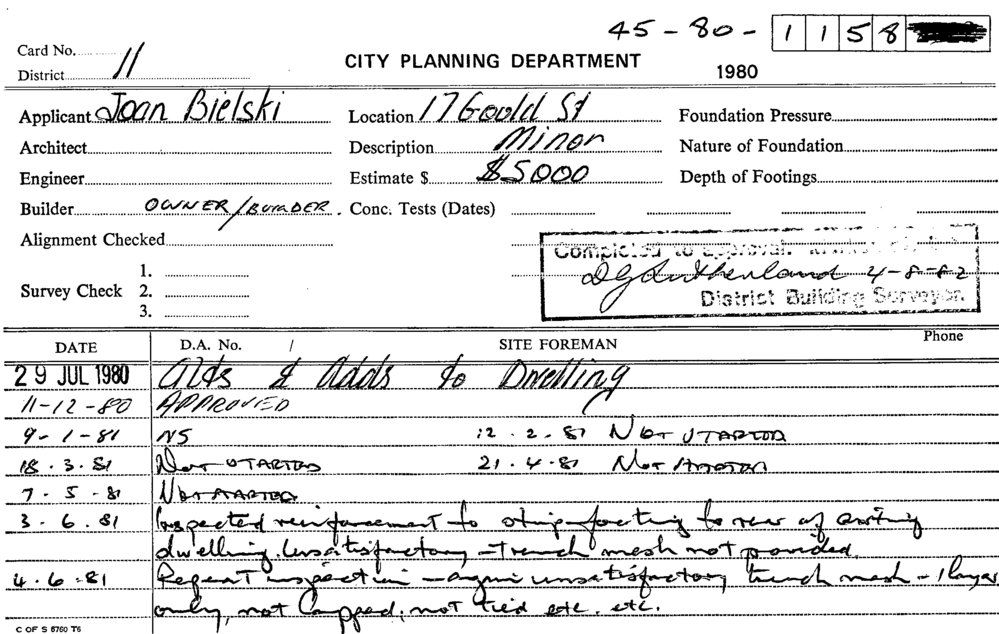 45-80-1158
Card No.
District 11
CITY PLANNING DEPARTMENT
1980
Applicant Joan Bielski Location 17 Goold St Foundation Pressure
Architect Description Minor Nature of Foundation
Engineer Estimate $ $5000 Depth of Footings
Builder OWNER/BUILDER. Conc. Tests (Dates)
Alignment Checked
Completed to approval.
Survey Check 1. 2. 3.
D G Sutherland 4-8-82
District Building Surveyor.
DATE D.A. No. / SITE FOREMAN Phone
29 JUL 1980 Alts & Adds to Dwelling
11-12-80 APPROVED
9-1-81 NS 12.2.81 NOT STARTED
18.3.81 NOT STARTED 21.4.81 NOT STARTED
7-5-81 NOT STARTED
3.6.81 Inspected reinforcement to strip footing to rear of existing
dwelling. Unsatisfactory - trench mesh not provided.
4.6.81 Repeat inspection - again unsatisfactory trench mesh - 1 layer
only, not lapped, not tied etc. etc.
C OF S 6760 T6